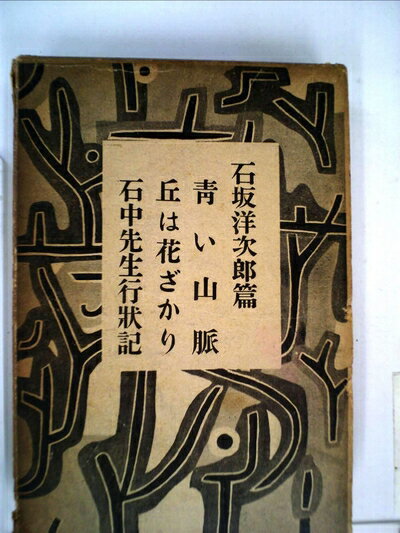 石坂洋次郎篇
青い山脈
丘は花ざかり
石中先生行狀記